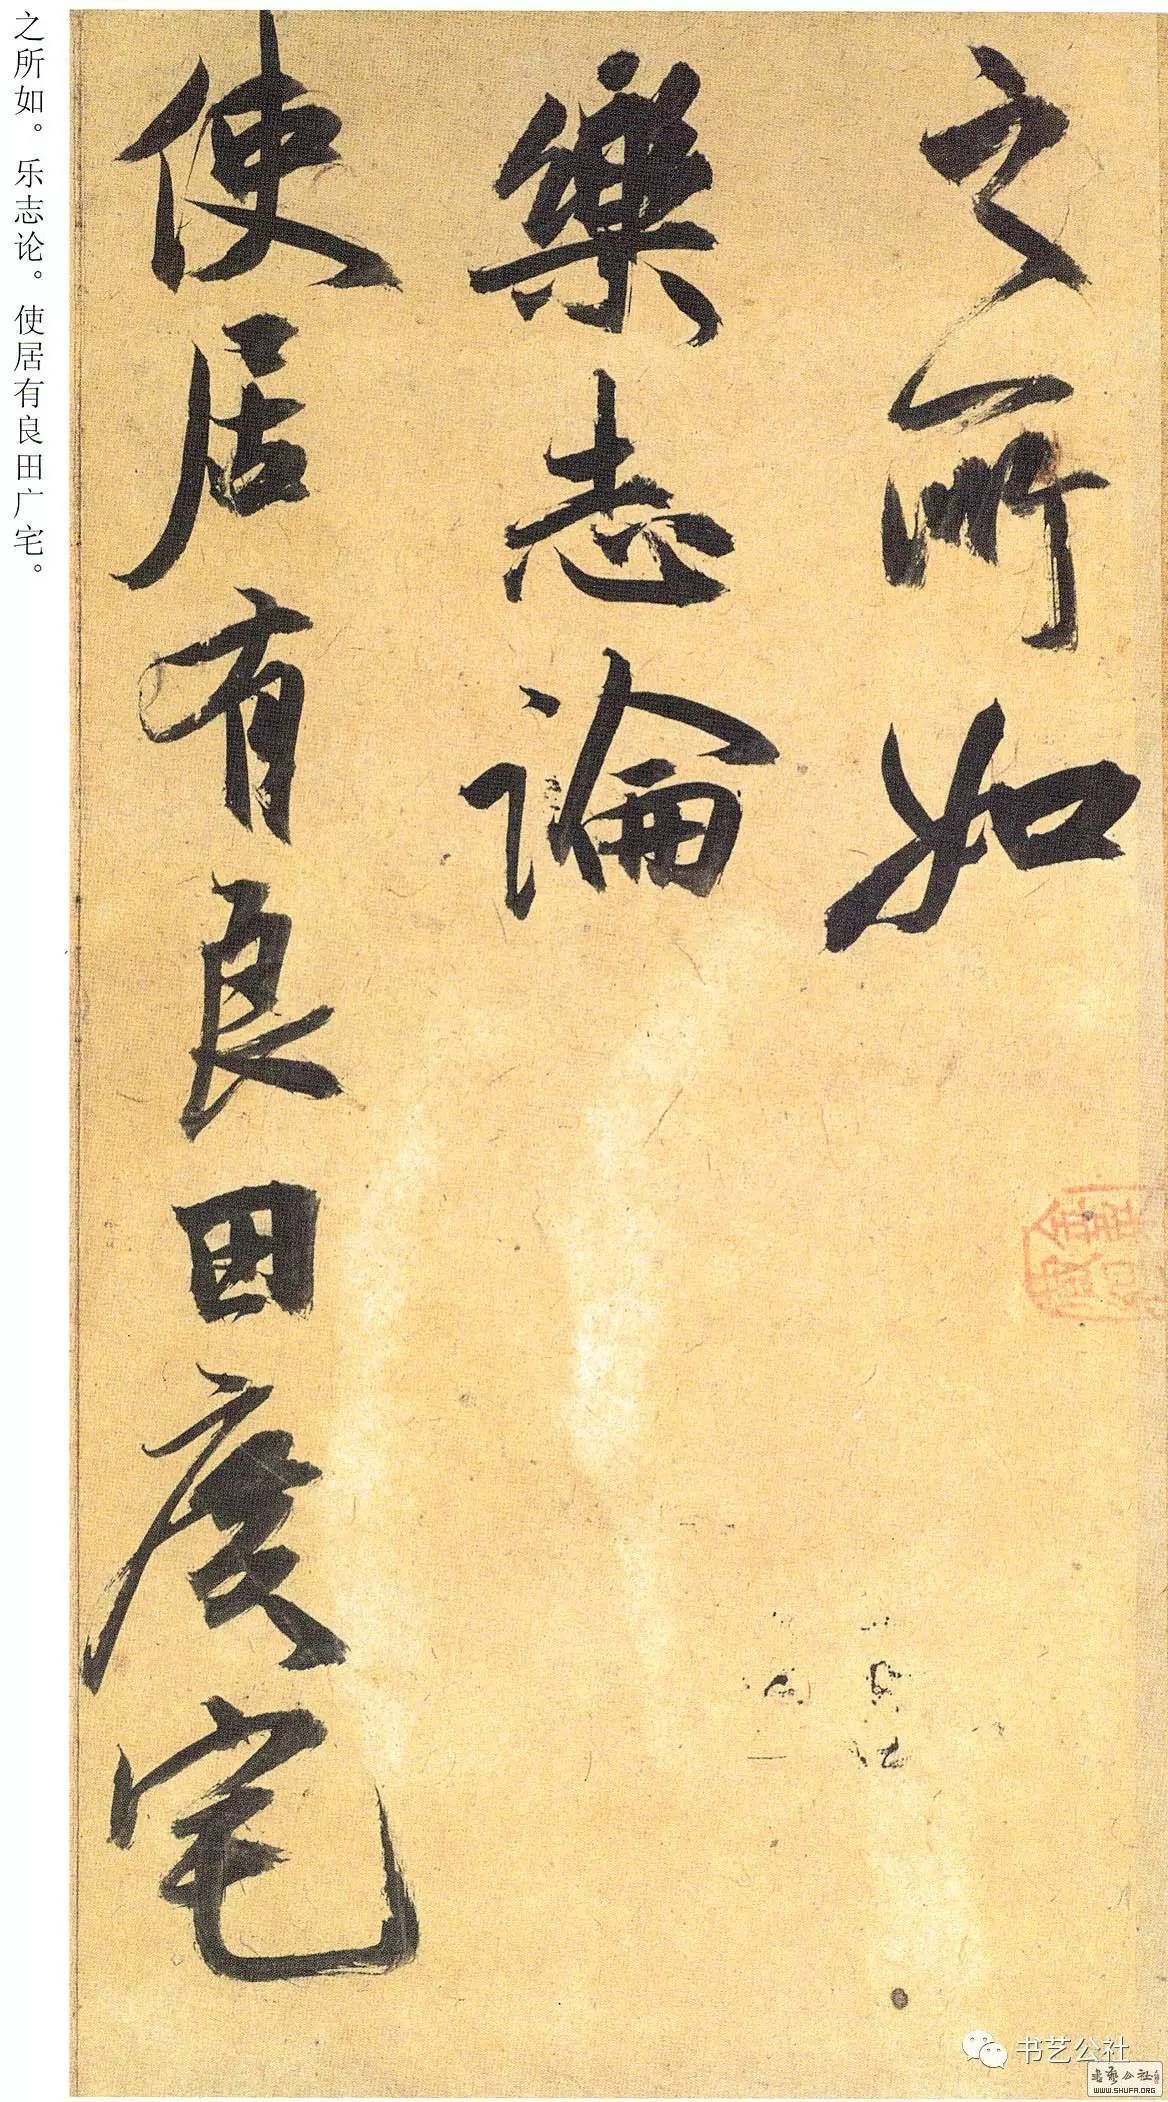 之所如
樂志論
使居有良田廣宅
之所如。乐志论。使居有良田广宅。
书艺公社
書藝公社
WWW.SHUFA.ORG